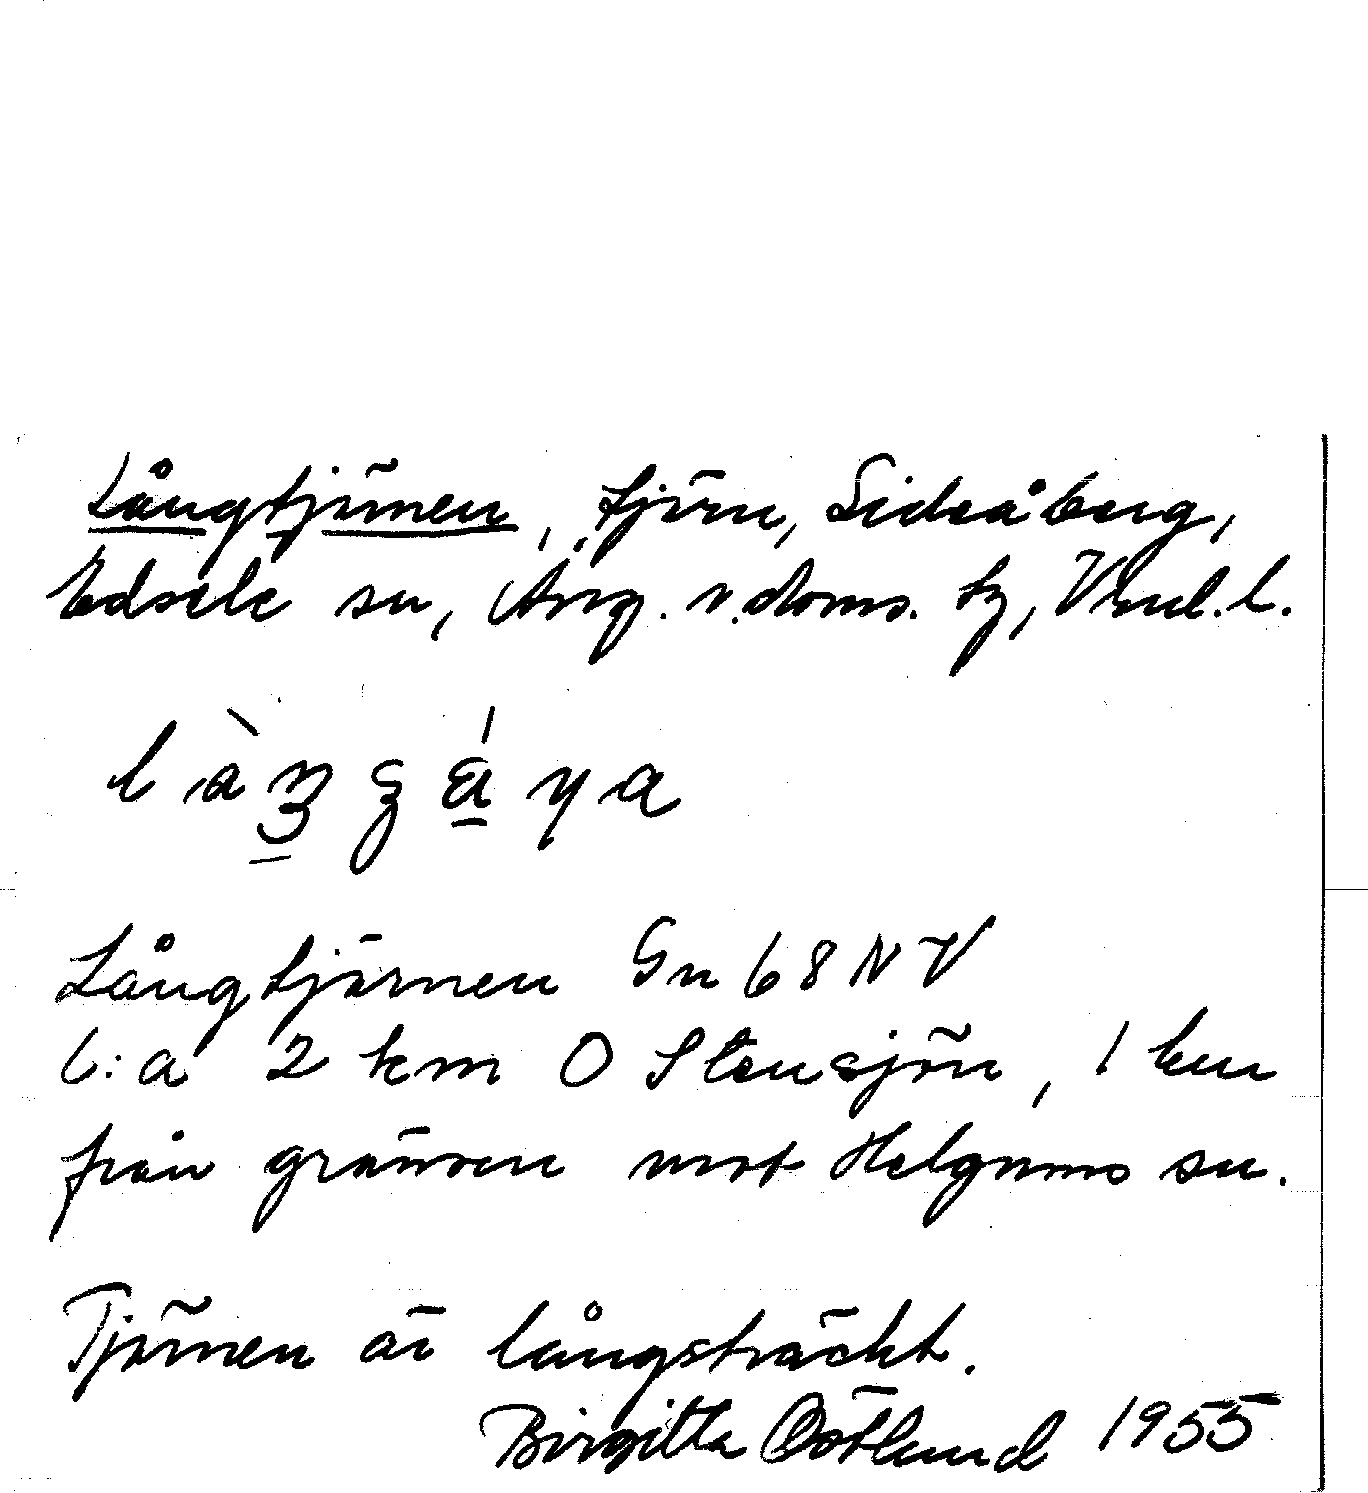 Långtjärnen, tjärn, Sideåberg,
Edsele sn, Ång. v. doms. tg, Vnl. l.
Långtjärnen Gn 68 NV
C:a 2 km O Stensjön, 1 km
från gränsen mot Helgums sn.
Tjärnen är långsträckt.
Birgitta Östlund 1955